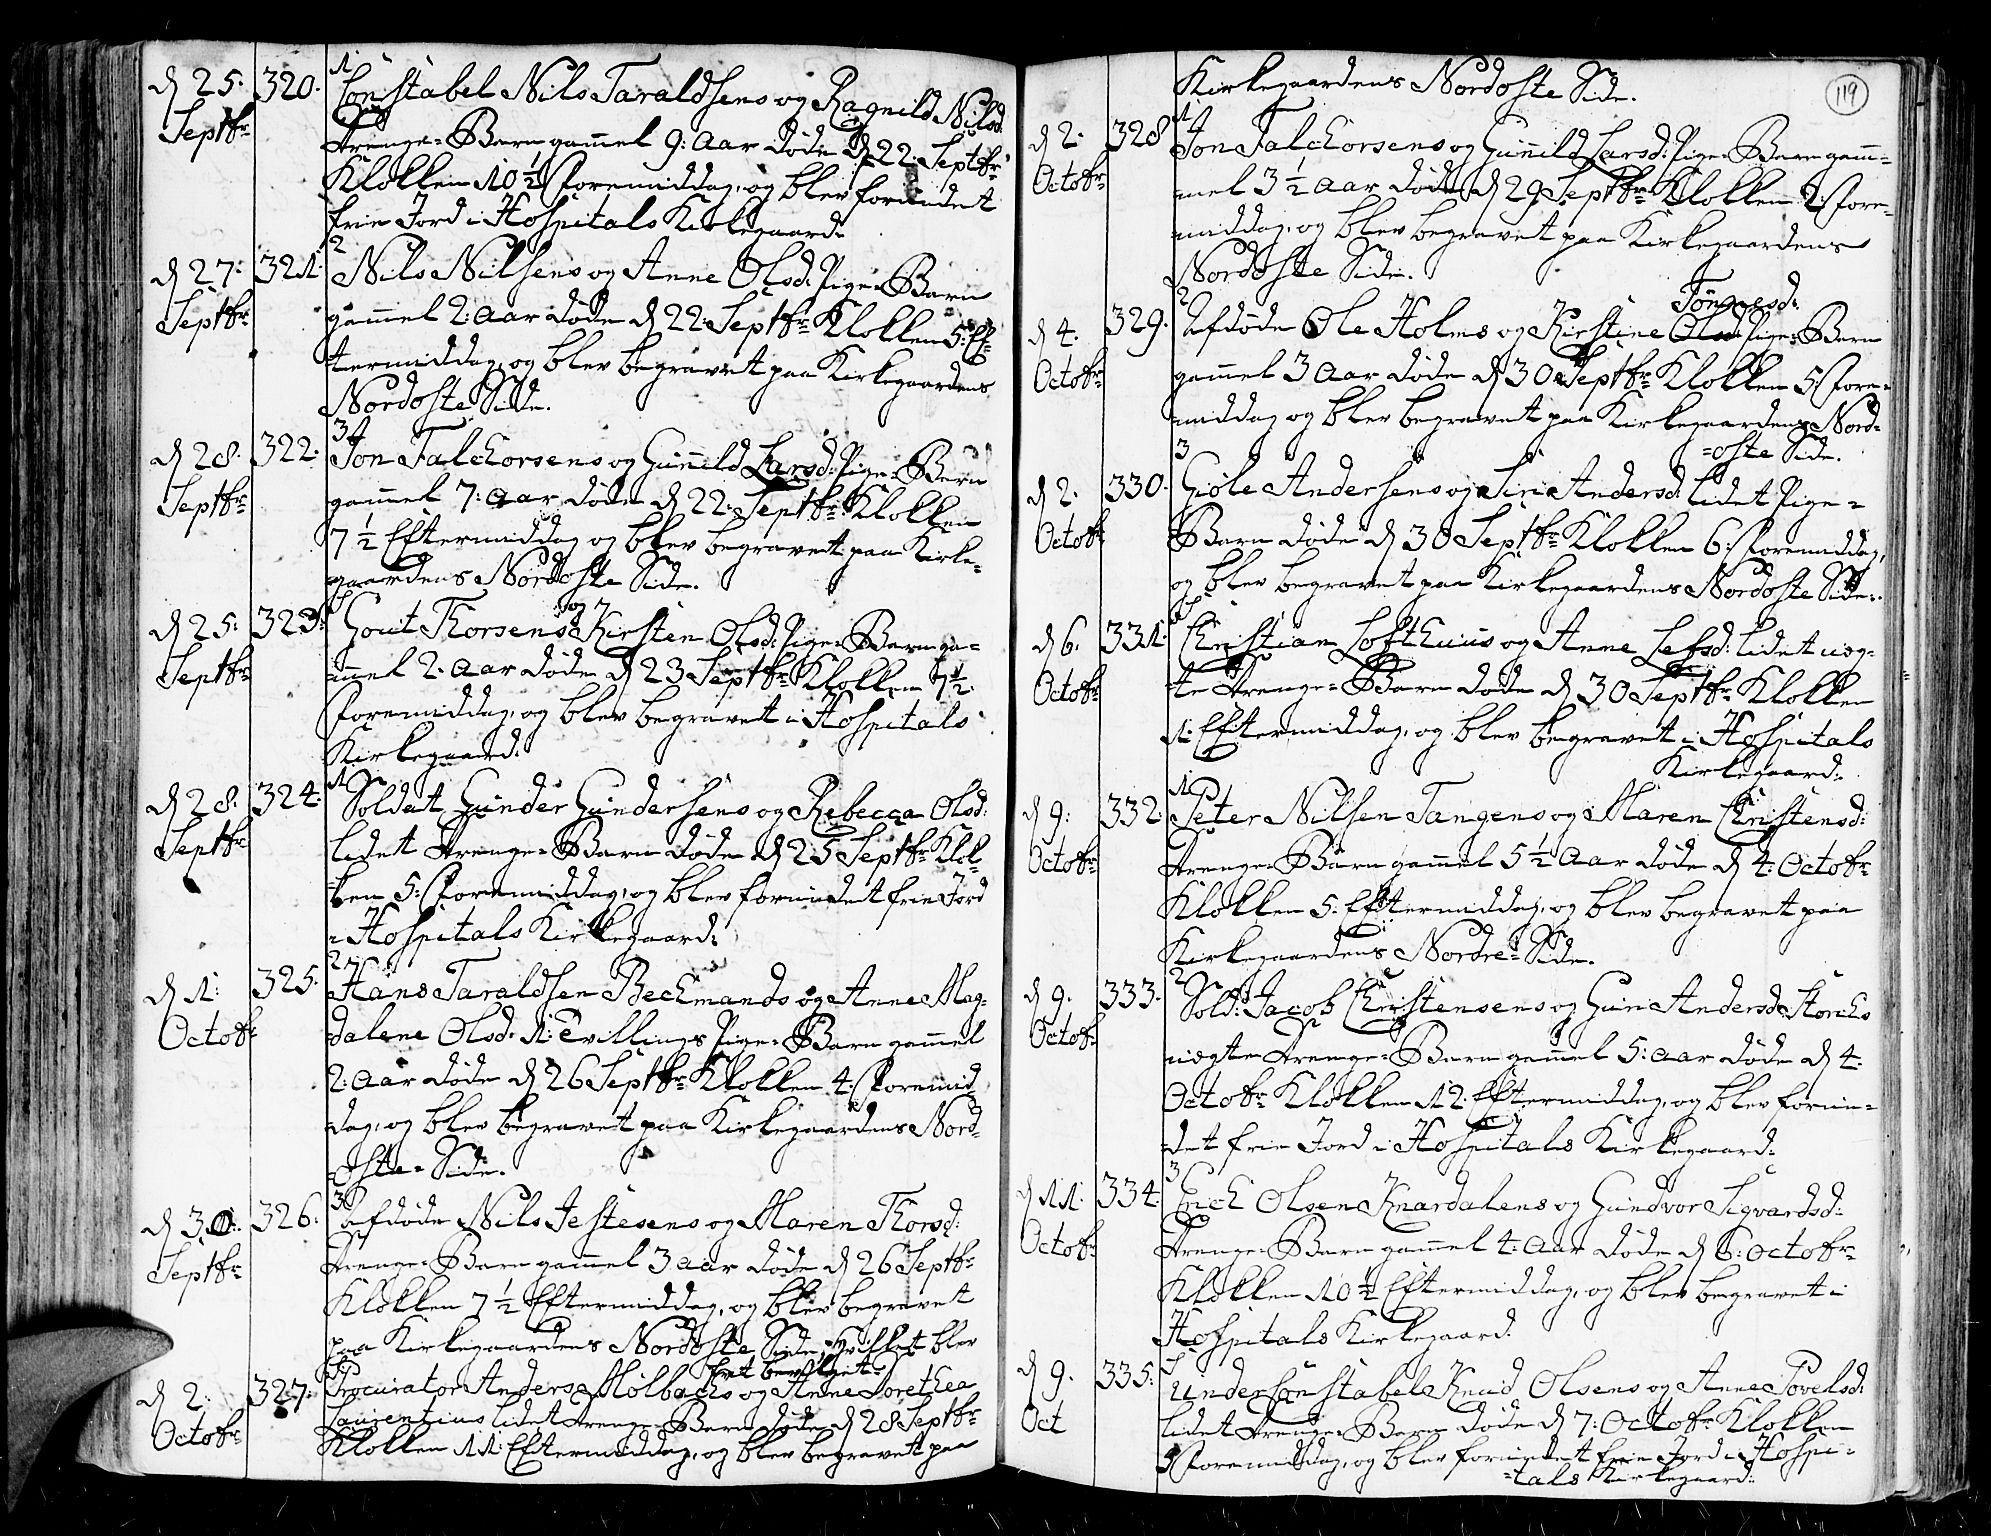 d 25: 320. 1
Constabel Nils Taraldsens og Ragnild Nilsd:
Septbr Drenge-Barn gammel 9: Aar døde d 22: Septbr
Klokken 10½ Formiddag, og blev forundet
frie Jord i Hospitals Kirkegaard.
2
d 27: 321: Nils Nilsens og Anne Olsd: Pige-Barn
Septbr gammel 2: Aar døde d 22: Septbr Klokken 5: Ef-
termiddag, og blev begravet paa Kirkegaardens
Nordoste Side.
3
d 28. 322: Jon Falchorsens og Gunnild Larsd: Pige-Barn
Septbr gammel 7: Aar døde d 22: Septbr Klokken
7½ Eftermiddag og blev begravet paa Kirke-
gaardens Nordoste Side.
d 25: 323: Gout Thorsens og Kirsten Olsd: Pige-Barn ga-
Septbr mmel 2: Aar døde d 23 Septbr Klokken 7½
Foremiddag, og blev begravet i Hospitals
Kirkegaard.
1
d 28. 324: Soldat Gunder Gundersens og Rebecca Olsd:
Septbr lidet Drenge-Barn døde d 25 Septbr Klok-
ken 5: Foremiddag, og blev forundet frie Jord
i Hospitals Kirkegaard:
2
d 1: 325: Hans Taraldsen Bechmands og Anne Mag-
Octobr dalene Olsd: 1: Tvillings Pige-Barn gammel
2: Aar døde d 26 Septbr Klokken 4: Foremid
dag, og blev begravet paa Kirkegaardens Nord-
Oste-Side.
3
d 30: 326: Afdøde Nils Jestesens og Maren Thorsd:
Septbr Drenge-Barn gammel 3 Aar døde d 26 Septbr
Klokken 7½ Eftermiddag, og blev begravet
paa Kirkegaardens Nordoste Side, hvilket blev
d 2: 327: Procurator Anders Mølbachs og Anne Dorethea
Octobr Laurentius lidet Drenge-Barn døde d 28 Septbr
Klokken 11: Eftermiddag, og blev begravet paa
119
Kirkegaardens Nordoste Side.
1
d 2: 328 Jon Falchorsens og Gunnild Larsd: Pige-Barn gam-
Octobr mel 3½ Aar døde d 29 Septbr Klokken 2: Fore-
middag, og blev begravet paa Kirkegaardens
Nordoste Side.
2 Tønnesd:
d 4. 329. Afdøde Ole Holms og Kirstine Olsd Pige-Barn
Octobr gammel 3 Aar døde d 30 Septbr Klokken 5: Fore-
middag og blev begravet paa Kirkegaardens Nord-
3 =oste Side.
d 2. 330. Giøle Andersens og Siri Andersd: lidet Pige-
Octobr Barn døde d 30 Septbr Klokken 6: Foremiddag,
og blev begravet paa Kirkegaardens Nordoste Side.
d 6. 331: Christian Lofthuus og Anne Lefsd: lidet uæg-
Octobr te Drenge-Barn døde d 30 Septbr Klokken
1: Eftermiddag, og blev begravet i Hospitals
Kirkegaard:
1
d 9: 332: Peter Nilsen Tangens og Maren Christensd:
Octobr Drenge-Barn gammel 5½ Aar døde d 4: Octobr
Klokken 5: Eftermiddag, og blev begravet paa
Kirkegaardens Nordre-Side.
2
d 9. 333. Sold: Jacob Christensens og Guri Andersd Storchs
Octobr uægte Drenge-Barn gammel 5: Aar døde d 4:
Octobr Klokken 12: Eftermiddag, og blev forun-
=det frie Jord i Hospitals Kirkegaard:
3
d 11: 334: Erich Olsen Knardalens og Gundvor Sigvardsd:
Octobr Drenge-Barn gammel 4: Aar døde d 6: Octobr
Klokken 10½ Eftermiddag, og blev begravet i
Hospitals Kirkegaard.
d 9. 335: UnderConstabel Knud Olsens og Anne Povelsd:
Oct lidet Drenge-Barn døde d 7: Octobr Klokken
Foremiddag, og blev forundet frie Jord i Hospi-
=tals Kirkegaard: